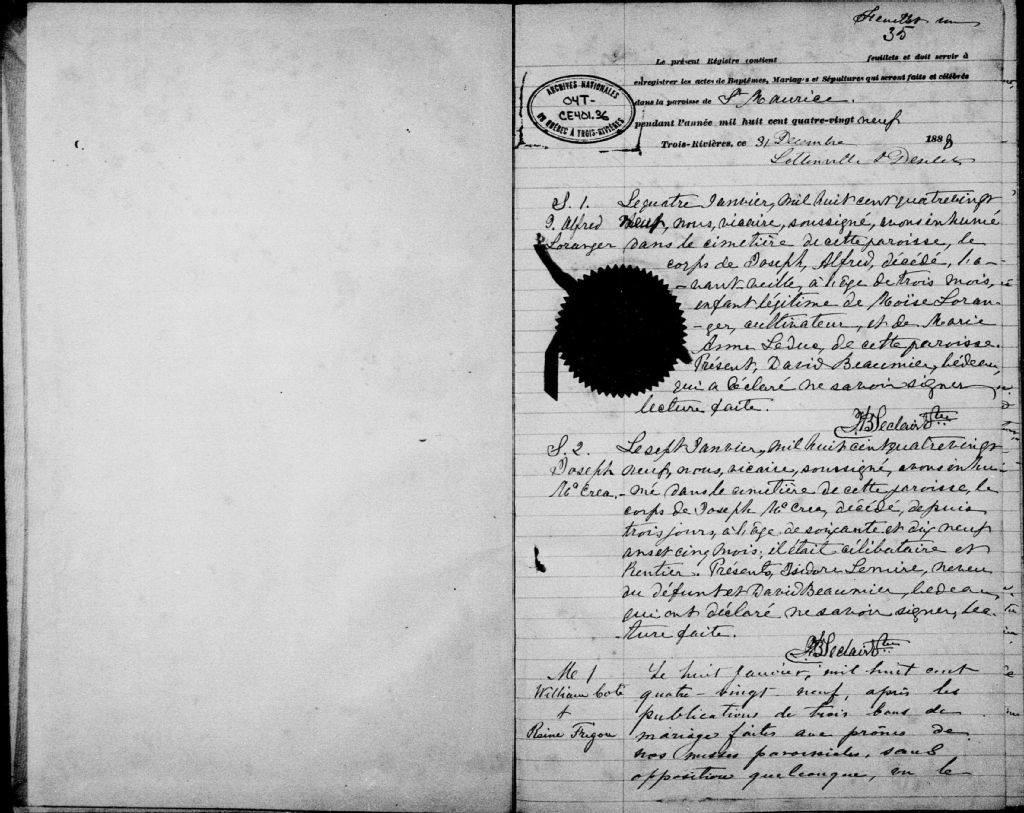 Feuillet un
35
Le présent Régistre contient feuillets et doit servir à
enregistrer les actes de Baptêmes, Mariages et Sépultures qui seront faits et célébrés
dans la paroisse de St Maurice.
pendant l'année mil huit cent quatre-vingt neuf
Trois-Rivières, ce 31 Décembre 1888
ARCHIVES NATIONALES
04T-
CE401.36
DU QUÉBEC À TROIS-RIVIÈRES
S. 1.
J. Alfred
Loranger
Le quatre Janvier, mil huit cent quatre vingt
neuf, nous, vicaire, soussigné, avons inhumé
dans le cimetière de cette paroisse, le
corps de Joseph, Alfred, décédé, l'a-
-vant veille, à l'âge de trois mois,
enfant légitime de Moïse Loran-
-ger, cultivateur, et de Marie
Anne Leduc, de cette paroisse.
Présent, David Beaumier, bédeau,
qui a déclaré ne savoir signer
lecture faite.
S. 2.
Joseph
Mc Crea.
Le sept Janvier, mil huit cent quatre vingt
neuf, nous, vicaire, soussigné, avons inhu-
-mé dans le cimetière de cette paroisse, le
corps de Joseph Mc Crea, décédé, depuis
trois jours, à l'âge de soixante et dix neuf
ans et cinq mois; il était célibataire et
Rentier. Présents, Isidore Lemire, neveu
du défunt et David Beaumier, bedeau,
qui ont déclaré ne savoir signer, lec-
-ture faite.
M 1
William Coté
+
Raine Frigon
Le huit Janvier, mil huit cent
quatre-vingt neuf, après les
publications de trois bans de
mariage faites aux prônes de
nos messes paroissiales, sans
opposition quelconque, vu le